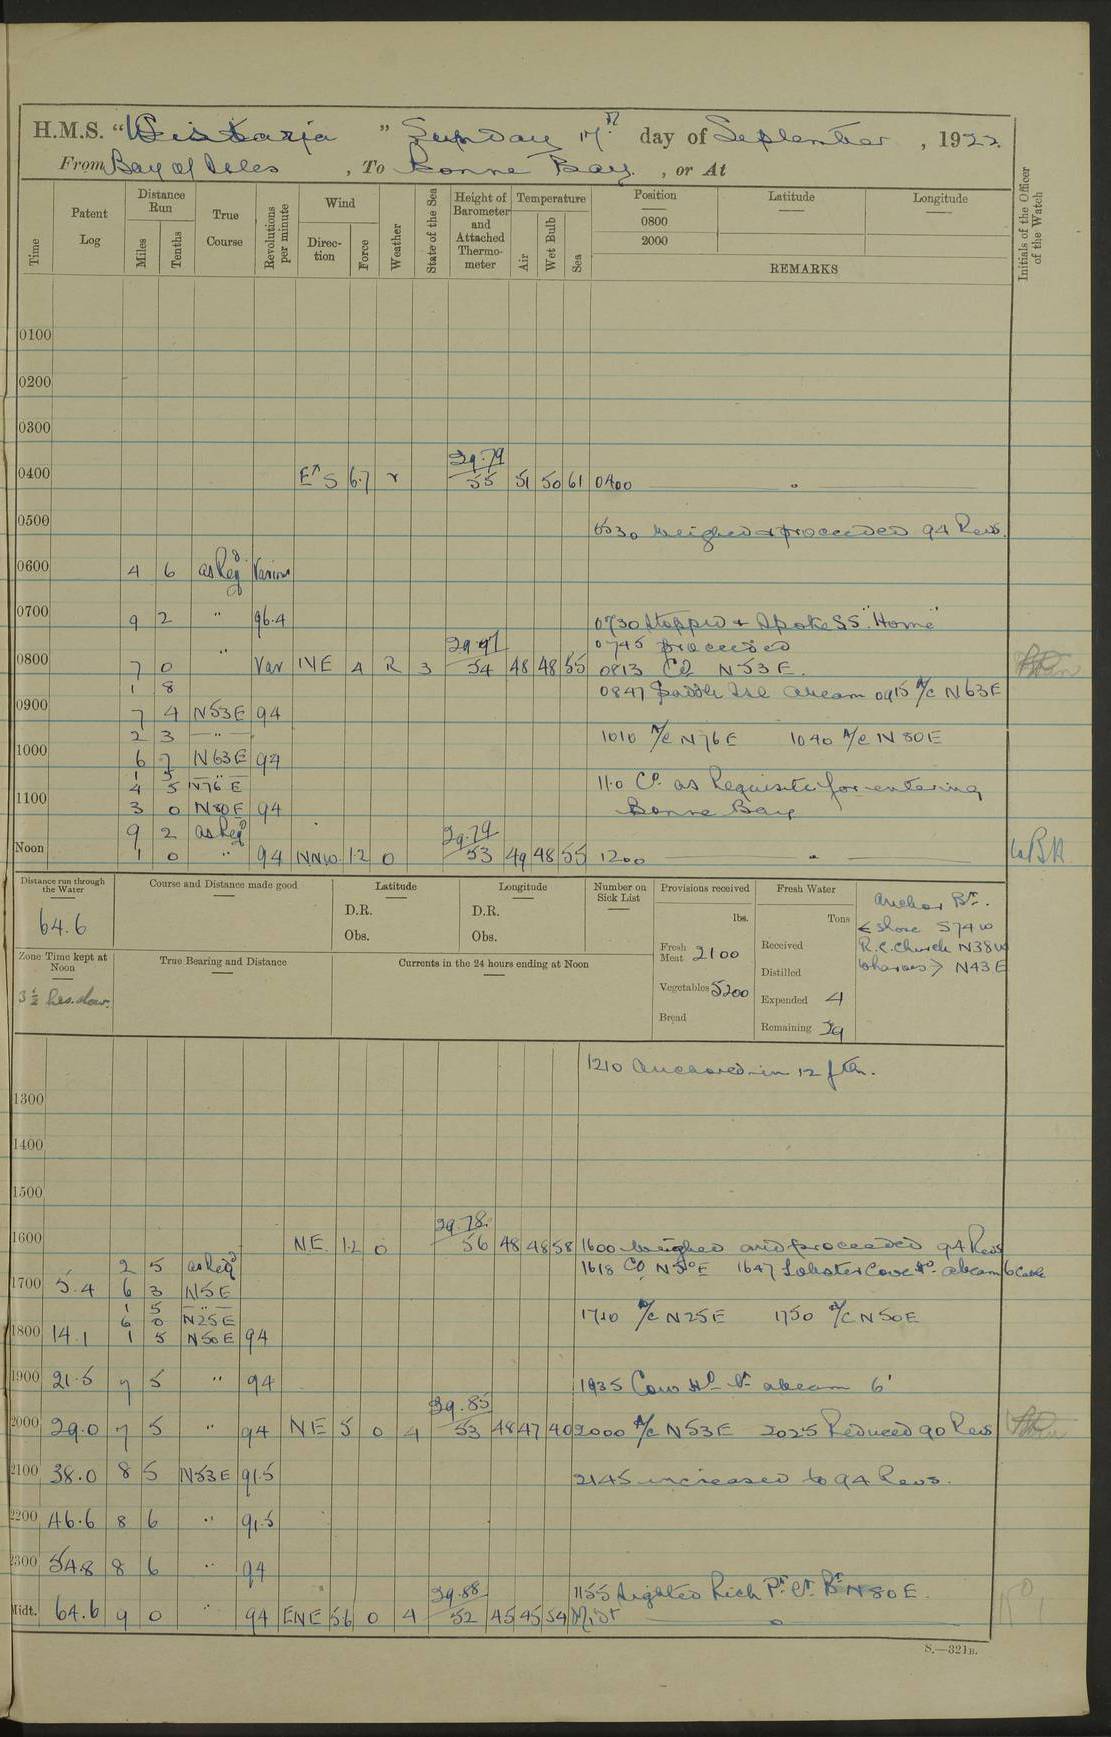 H.M.S. "Wistaria" Sunday 17th day of September, 1922.
From Bay of Isles, To Bonne Bay., or At
Time
Patent Log
Distance Run
Miles
Tenths
True Course
Revolutions per minute
Wind
Direction
Force
Weather
State of the Sea
Height of Barometer and Attached Thermometer
Temperature
Air
Wet Bulb
Sea
Position
0800
2000
Latitude
Longitude
REMARKS
Initials of the Officer of the Watch
0100
0200
0300
29.79
0400 6.7 r 55 51 50 61 0400
0500 0530 Weighed & proceeded 94 Revs.
0600 4 6 as Reqd Various
0700 9 2 " 96.4 0730 Stopped & Spoke SS. "Home"
0745 proceeded
0800 7 0 " Var NE 4 R 3 54 48 48 55 0813 Co N53E.
1 8 0847 Saddle Isl abeam 0915 A/c N63E
0900 7 4 N53E 94
2 3 — " — 1010 A/c N76E 1040 A/c N80E
1000 6 7 N63E 94
1 5 — " —
4 5 N76E 11.0 Co. as Requisite for entering
1100 3 0 N80E 94 Bonne Bay
9 2 as Reqd 29.79
Noon 1 0 " 94 NNW. 1.2 0 53 49 48 55 1200
Distance run through the Water
64.6
Course and Distance made good
Latitude
D.R.
Obs.
Longitude
D.R.
Obs.
Number on Sick List
Provisions received
lbs.
Fresh Meat 2100
Vegetables 5200
Bread
Fresh Water
Tons
Received
Distilled
Expended 4
Remaining 39
Anchor Br.
< shore S74W
R.C. Church N38W
Wharves > N43E
Zone Time kept at Noon
3½ hrs. slow.
True Bearing and Distance
Currents in the 24 hours ending at Noon
1210 Anchored in 12 fm.
1300
1400
1500
29.78.
1600 NE. 1.2 0 56 48 48 58 1600 Weighed and proceeded 94 Revs
2 5 as Reqd 1618 Co. 1647 Lobster Cove Hd. abeam 6 Cable
1700 5.4 6 3 N5E
1 5 — " —
6 0 N25E 1710 A/c N25E 1750 A/c N50E
1800 14.1 1 5 N50E 94
1900 21.5 7 5 " 94 1935 Cow Hd Lt abeam 6'
29.85
2000 29.0 7 5 " 94 NE 5 0 4 53 48 47 40 2000 A/c N53E 2025 Reduced 90 Revs
2100 38.0 8 5 N53E 91.5 2145 increased to 94 Revs.
2200 46.6 8 6 " 91.5
2300 54.8 8 6 " 94
29.88 1155 Sighted Rich Pt. Lt. Br. N80E.
Midt. 64.6 9 0 " 94 ENE 5.6 0 4 52 45 45 54 Midt
S.—321B.